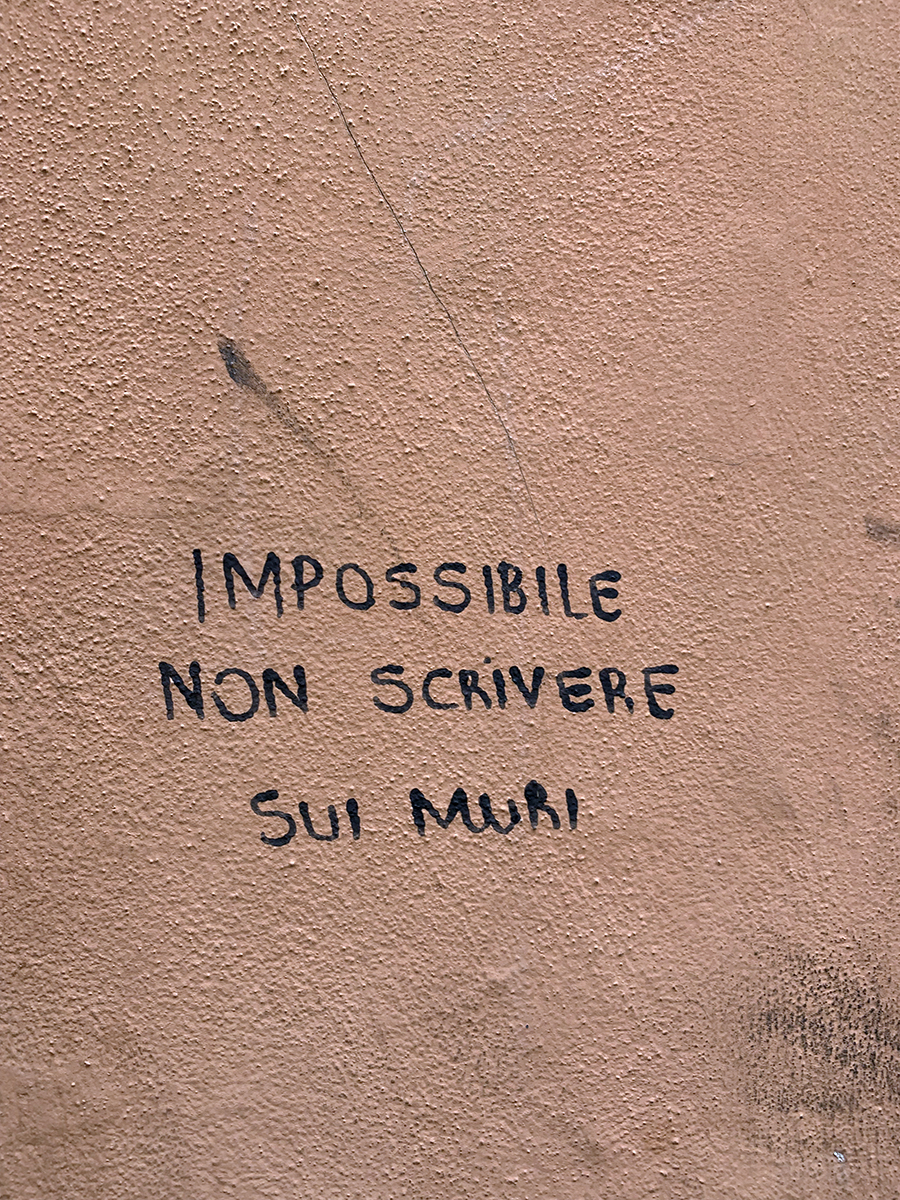 IMPOSSIBILE
NON SCRIVERE
SUI MURI